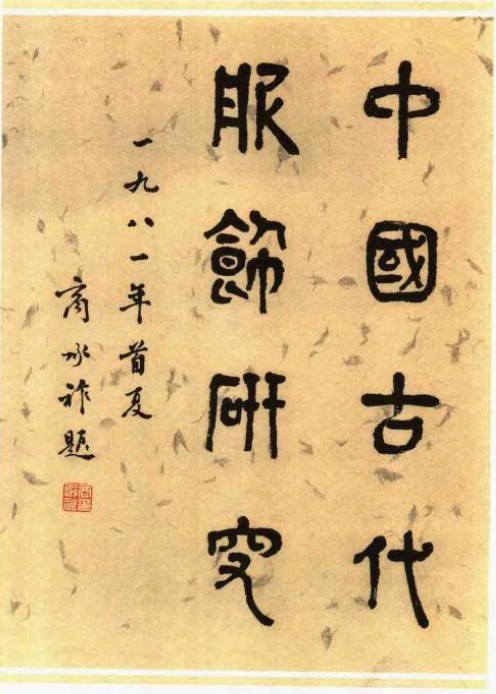 中國古代
服飾研究
一九八一年首夏
商承祚題